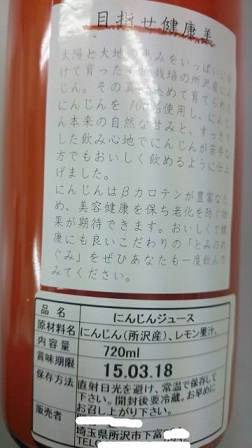 目指せ健康美
太陽と大地の恵みをいっぱいに
けて育った
栽培の所沢産に
じん。その
めて育てられた
にんじんを10
使用し、にんじ
ん本来の自然な甘みと、すっき
した飲み心地でにんじんが苦手な
方でもおいしく飲めるように仕上
げました。
にんじんはβカロテンが豊富なた
め、美容健康を保ち老化を防ぐ効
果が期待できます。おいしくて健
康にも良いこだわりの「とみのめ
ぐみ」をぜひあなたも一度飲んで
みてください。
品名 にんじんジュース
原材料名 にんじん(所沢産)、レモン果汁、
内容量 720ml
賞味期限 15.03.18
保存方法 直射日光を避け、常温で保存して
下さい。開封後要冷蔵。お早めに
お召し上がり下さい。
販売者
埼玉県所沢市下富
TEL